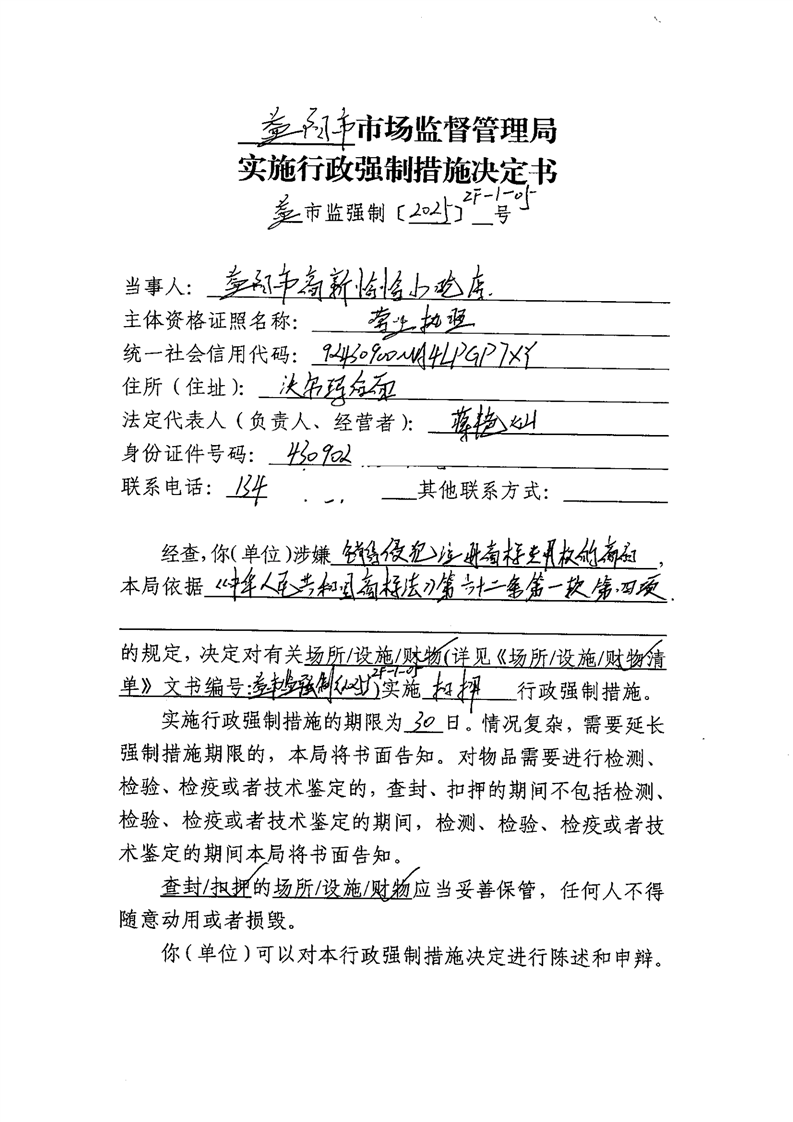 益阳市市场监督管理局
实施行政强制措施决定书
益市监强制〔2025〕ZF-1-05号
当事人：益阳市高新恰恰小吃店
主体资格证照名称：营业执照
统一社会信用代码：92430900MA4LPGP7XY
住所（住址）：
法定代表人（负责人、经营者）：
身份证件号码：430902
联系电话：134 其他联系方式：
经查，你（单位）涉嫌 销售侵犯注册商标专用权的商品，
本局依据《中华人民共和国商标法》第六十二条第一款第四项
的规定，决定对有关场所/设施/财物（详见《场所/设施/财物清
单》文书编号：益市监强制〔2025〕ZF-1-05）实施 扣押 行政强制措施。
实施行政强制措施的期限为30日。情况复杂，需要延长
强制措施期限的，本局将书面告知。对物品需要进行检测、
检验、检疫或者技术鉴定的，查封、扣押的期间不包括检测、
检验、检疫或者技术鉴定的期间，检测、检验、检疫或者技
术鉴定的期间本局将书面告知。
查封/扣押的场所/设施/财物应当妥善保管，任何人不得
随意动用或者损毁。
你（单位）可以对本行政强制措施决定进行陈述和申辩。